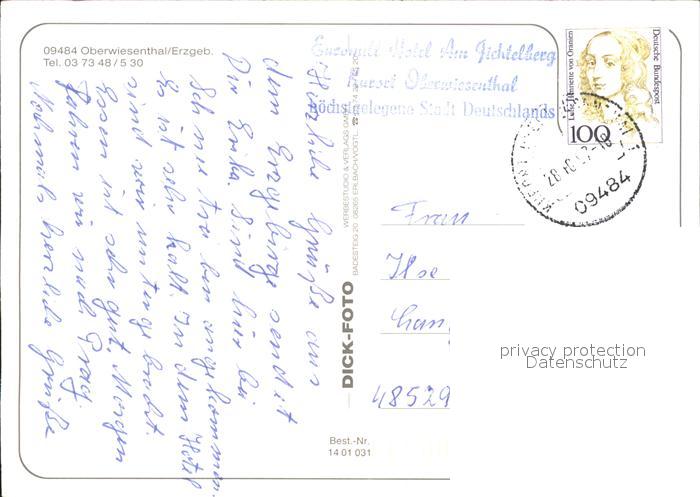 09484 Oberwiesenthal/Erzgeb.
Tel. 03 73 48 / 5 30
Hotel Am Fichtelberg
Kurort Oberwiesenthal
höchstgelegene Stadt Deutschlands
Deutsche Bundespost
Luise Henriette von Oranien
100
09484
Herzliche Grüße aus
dem Erzgebirge sendet
Dir Erika. Sind hier bei
Schneetreiben angekommen.
Es ist sehr kalt. In dem Hotel
sind wir untergebracht.
Essen ist sehr gut. Morgen
fahren wir nach Prag.
Nochmals herzliche Grüße
DICK-FOTO
WERBESTUDIO & VERLAGS GMBH
BADESTEIG 20 08265 ERLBACH/VOGTL.
Frau
Ilse
48529
privacy protection
Datenschutz
Best.-Nr.
14 01 031